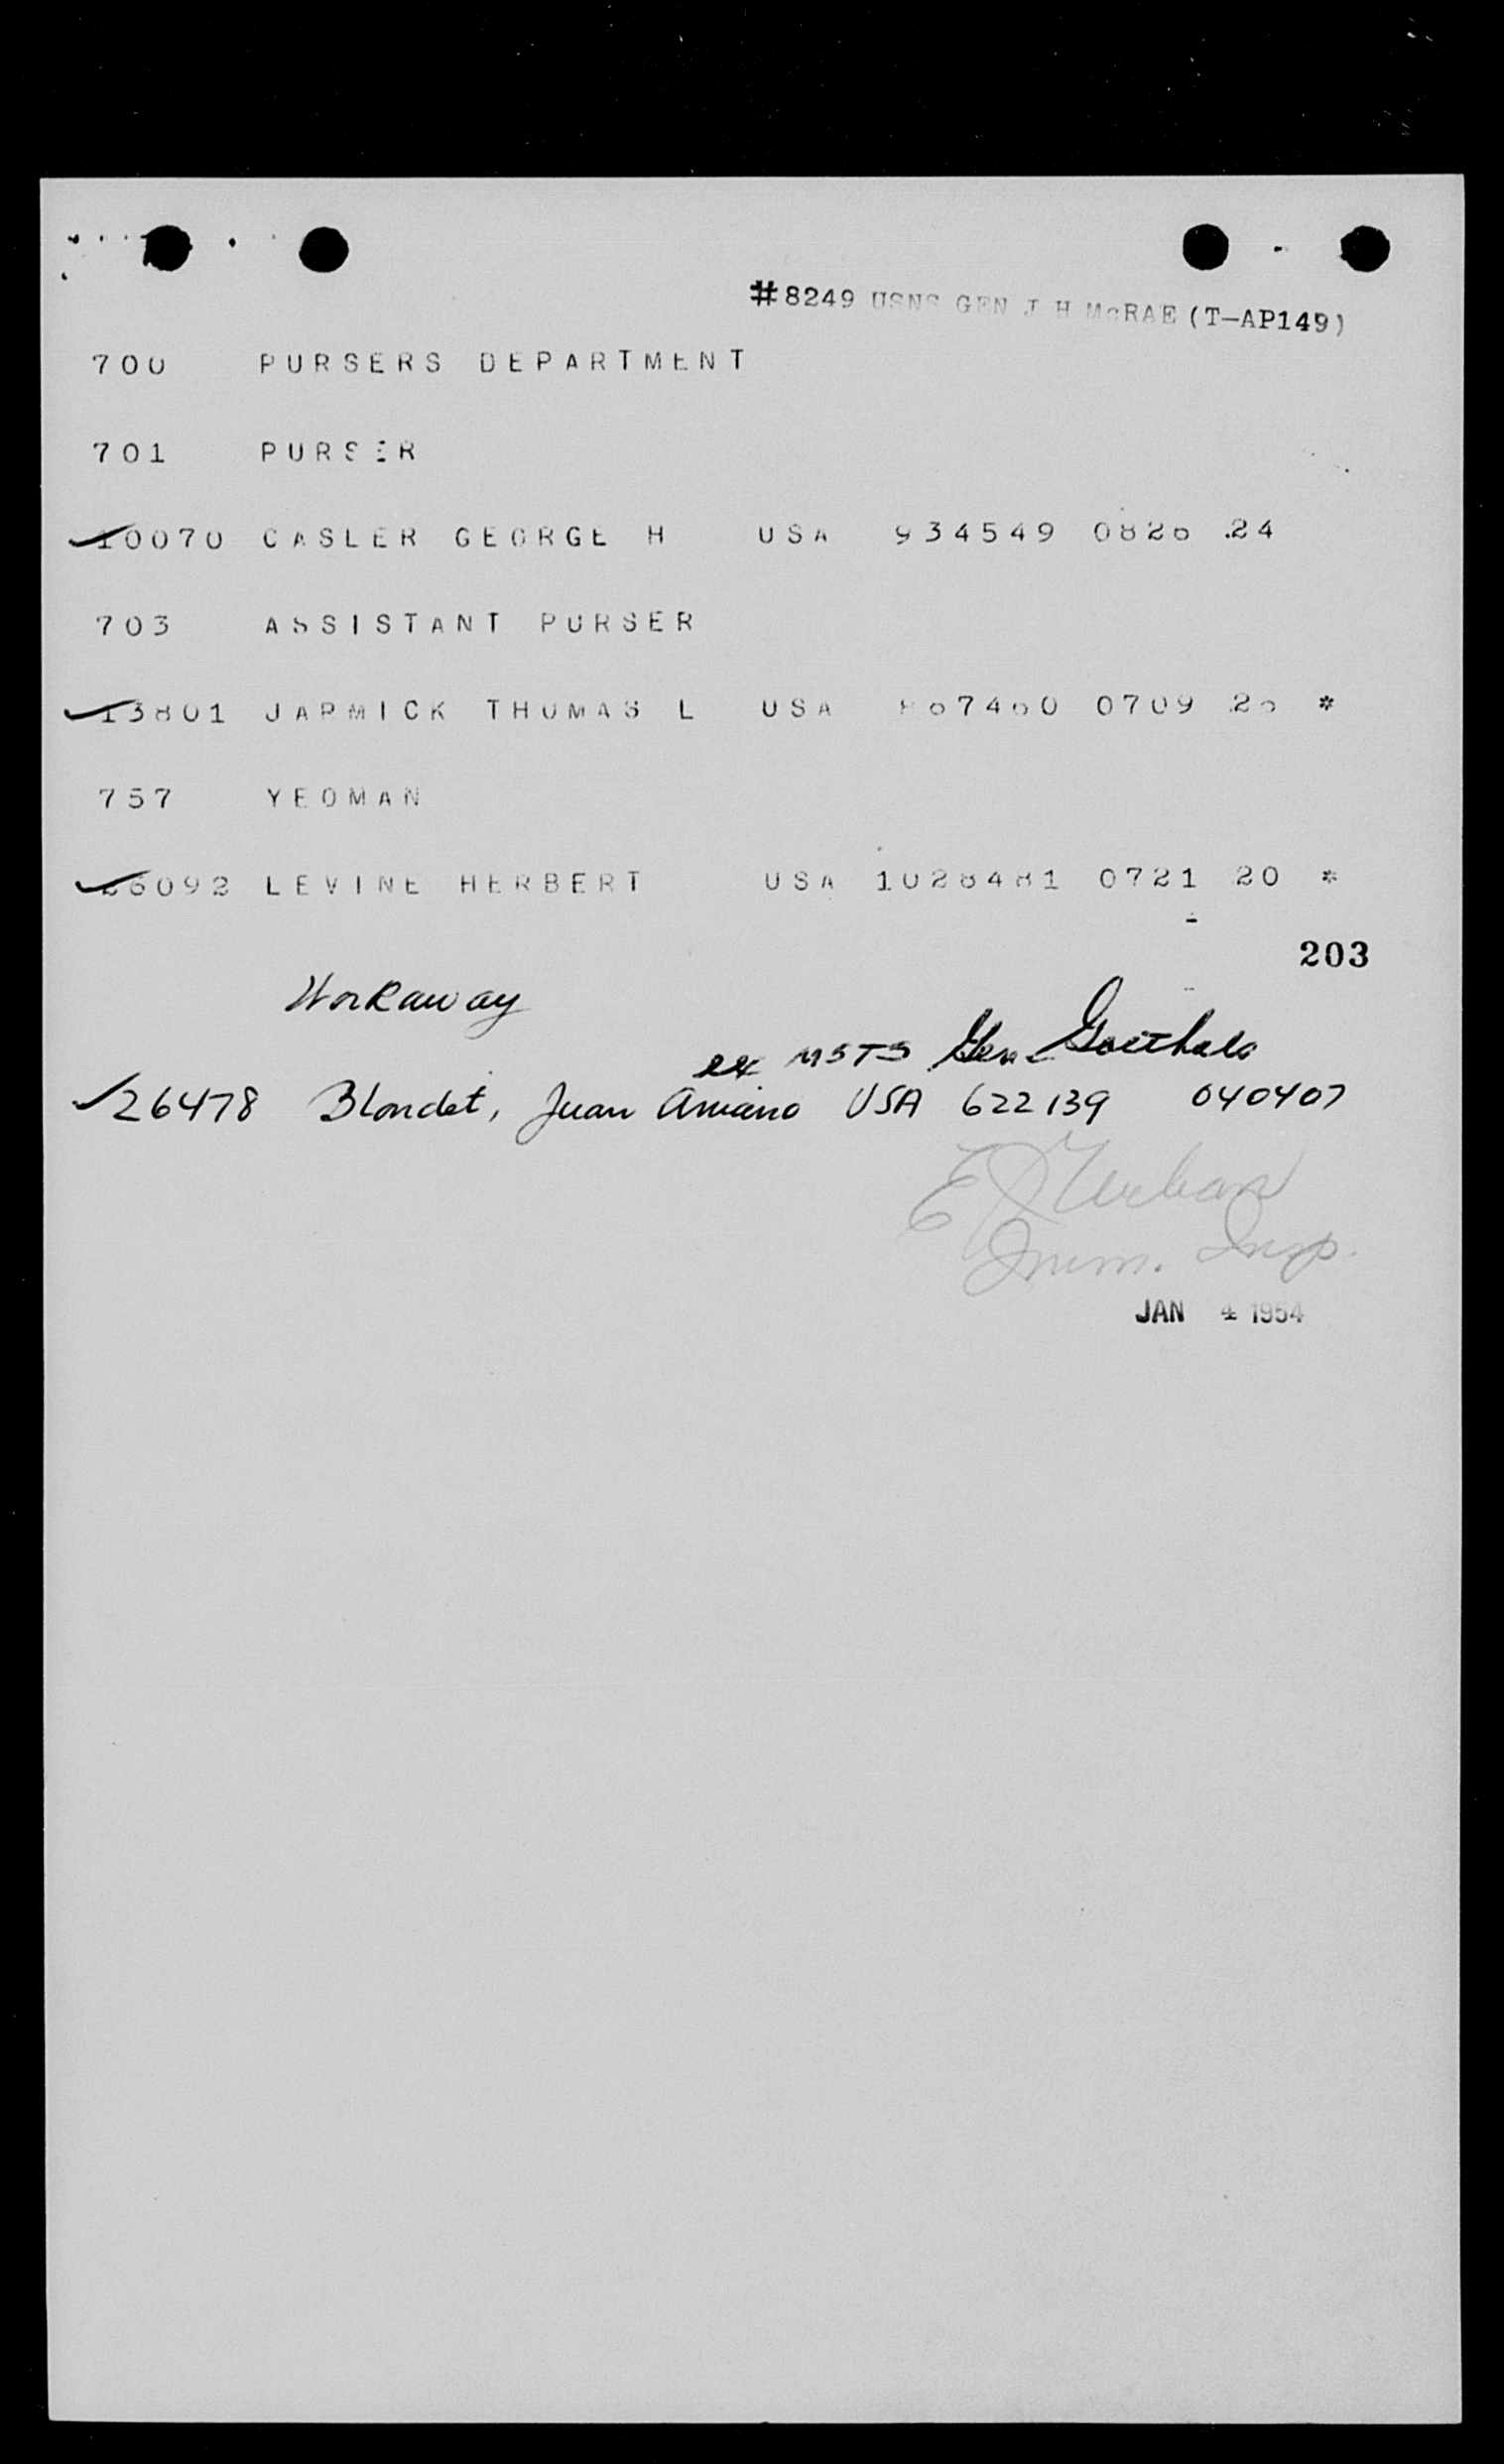 #8249 USNS GEN J H McRAE (T-AP149)
700 PURSERS DEPARTMENT
701 PURSER
10070 CASLER GEORGE H USA 934549 0826 24
703 ASSISTANT PURSER
13801 JAPMICK THOMAS L USA 0709 *
757 YEOMAN
26092 LEVINE HERBERT USA 1028481 0721 20 *
203
Workaway
ex MSTS Gen Goethals
26478 Blondet, Juan Amano USA 622139 040407
E J Urban
Imm. Insp.
JAN 4 1954